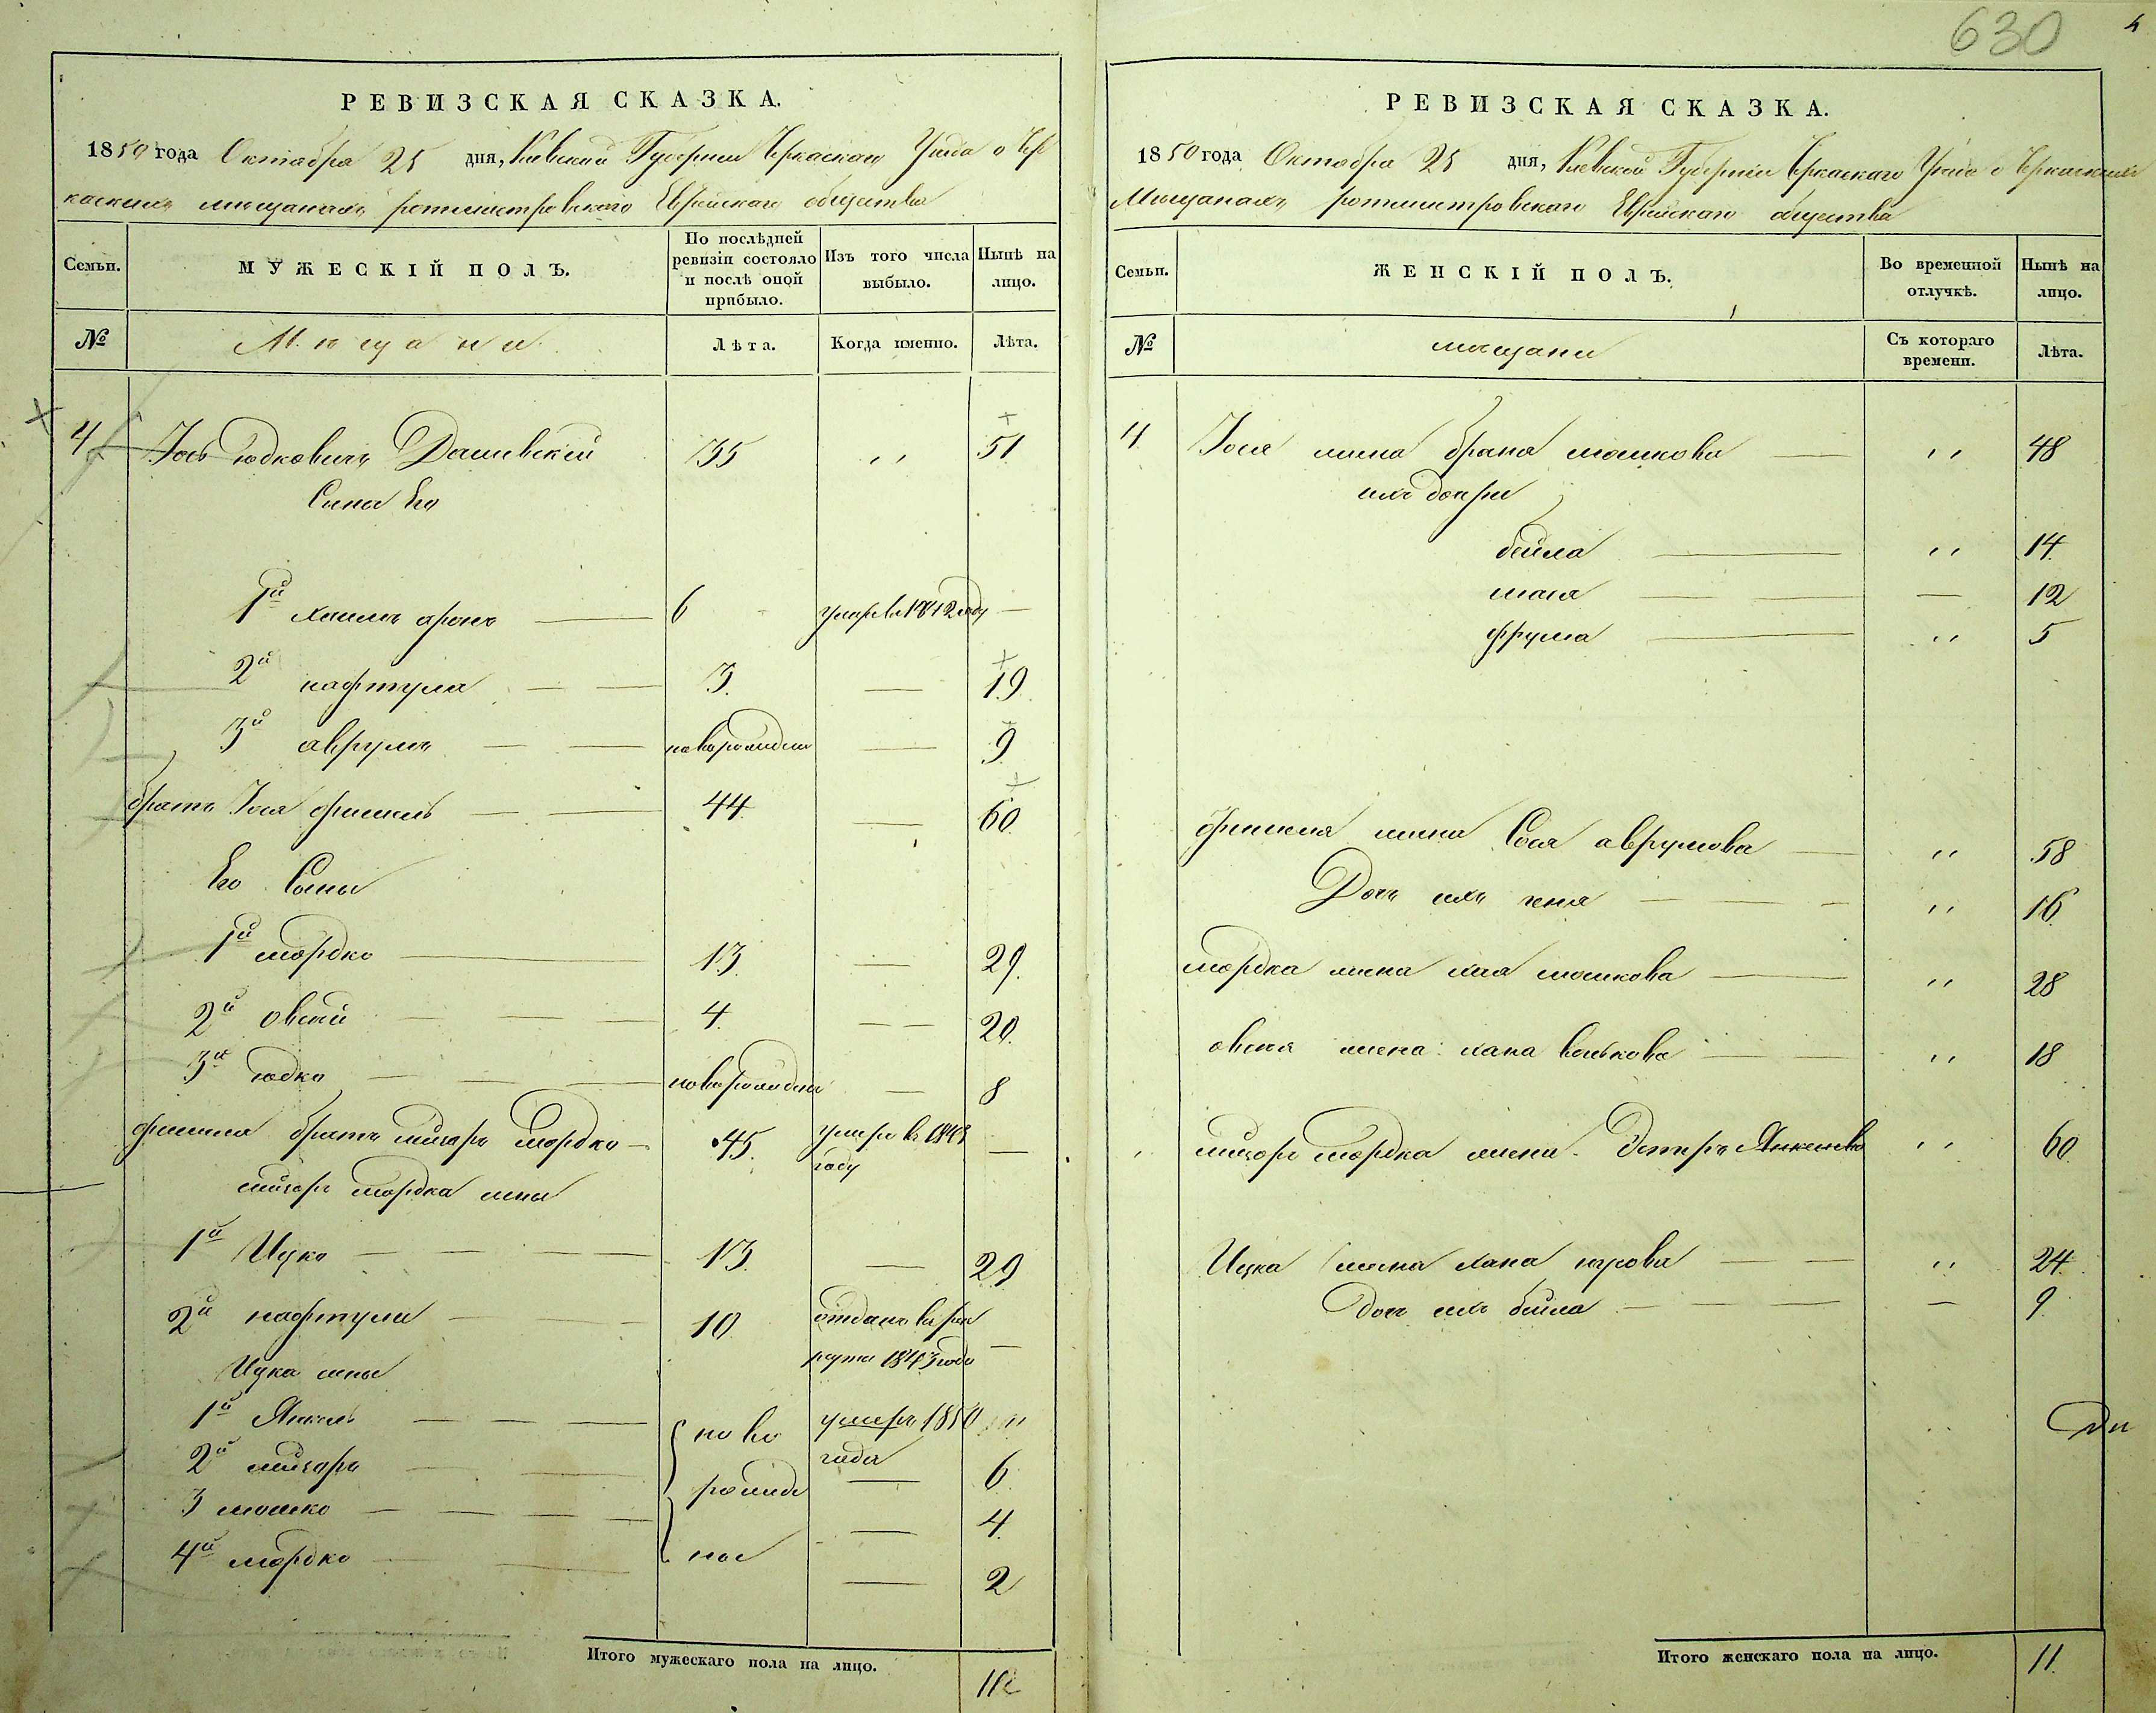 630
4
РЕВИЗСКАЯ СКАЗКА.
1850 года Октября 25 дня, Киевской Губернии Черкаскаго Уезда о Чер
каскихъ мещанахъ ротмистровскаго Еврейскаго общества
Семьи.
МУЖЕСКІЙ ПОЛЪ.
По послѣдней ревизіи состояло и послѣ оной прибыло.
Изъ того числа выбыло.
Нынѣ на лицо.
№
Мещане
Лѣта.
Когда именно.
Лѣта.
4 Іось юдковичъ Дашевский 35 ,, 51
Сыны Его
1й хаимъ аронъ — 6 умеръ въ 1842 году —
2й нафтула — — 3. — 19.
3й аврумъ — — новорожденъ — 9.
братъ Іося фишель — — 44. — 60.
Его Сыны
1й мордко — 13. — 29.
2й овсей — — — 4. — — 20.
3й юдко — — — новорожденъ — 8
фишеля братъ мордко — 45. умеръ въ году —
мордка сыны
1й Ицко — — — — 13. — 29
2й нафтула — — — 10 отданъ въ рек
руты 1843 года —
Ицка сыны
1й Янкель — — — ново умеръ 1850 ,,
года
2й — — рожде — 6.
3 мошко — — — — — 4.
4й мордко — — ные — 2
Итого мужескаго пола на лицо.
РЕВИЗСКАЯ СКАЗКА.
1850 года Октября 25 дня, Киевской Губерніи Черкаскаго Уезда о Черкаскихъ
Мещанахъ ротмистровскаго Еврейскаго общества
Семьи.
ЖЕНСКІЙ ПОЛЪ.
Во временной отлучкѣ.
Нынѣ на лицо.
№
мещани
Съ котораго времени.
Лѣта.
4. Іося жена брана мошкова — ,, 48
ихъ дочери
бейла — ,, 14.
— — — 12
фрума — ,, 5
Фишеля жена Сося аврумова — ,, 58
Дочь ихъ геня — — — ,, 16.
мордка жена хая мошкова — ,, 28
овсея жена хана волькова — ,, 18
мордка жена Эстеръ Янкелева ,, 60.
Ицка жена хана — — ,, 24.
дочь ихъ бейла — — — — 9.
Итого женскаго пола на лицо.
11.